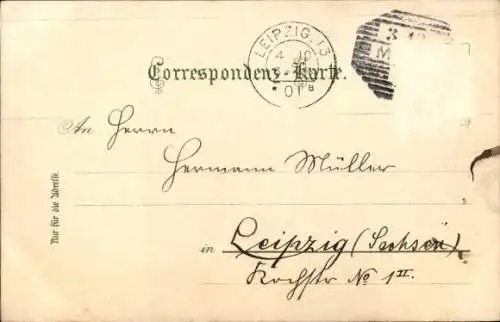 LEIPZIG. 13
4 10
01 B
3 10
M
Correspondenz-Karte.
An Herrn
Hermann Müller
in Leipzig (Sachsen)
Kochstr No 1 II.
Nur für die Adresse.